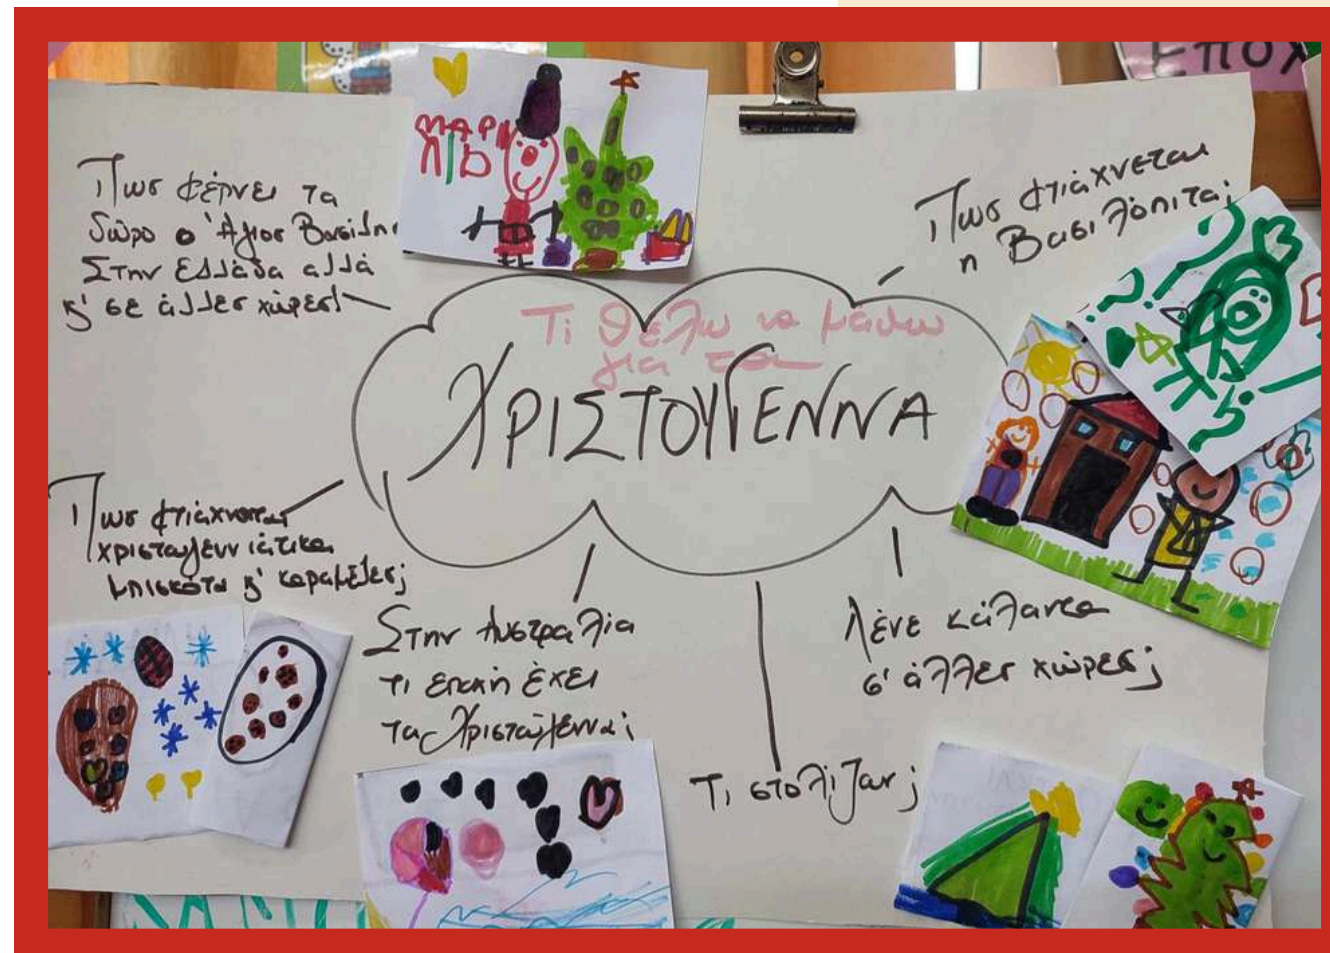 ΕΠΟΧ
ΜΑΡ
Πως φέρνει τα
δώρα ο Άγιος Βασίλης
Στην Ελλάδα αλλά
κ' σε άλλες χώρες!
Πως φτιάχνεται
η Βασιλόπιτα;
Τι θέλω να μάθω
για τα
ΧΡΙΣΤΟΥΓΕΝΝΑ
Πως φτιάχνονται
χριστουγεννιάτικα
μπισκότα κ' καραμέλες;
Στην Αυστραλία
τι εποχή έχει
τα Χριστούγεννα;
Λένε κάλαντα
σ' άλλες χώρες;
Τι στολίζουν;